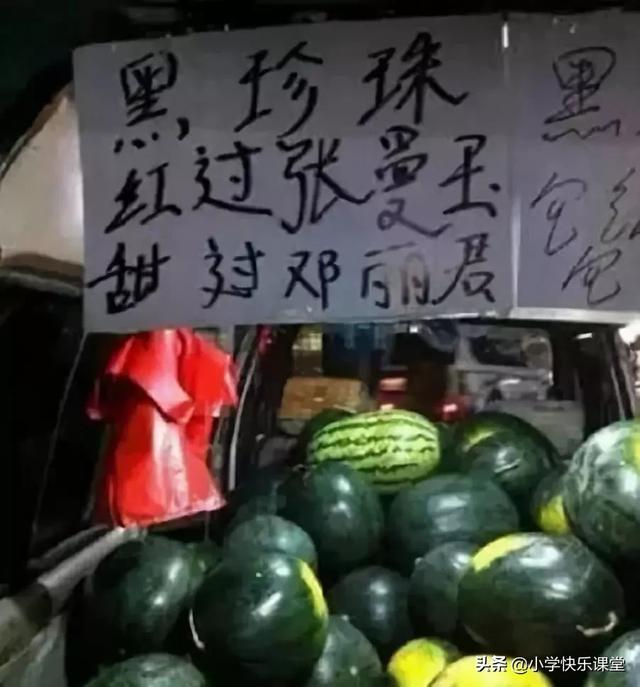 黑珍珠
红过张曼玉
甜过邓丽君
黑
包
包
头条 @小学快乐课堂